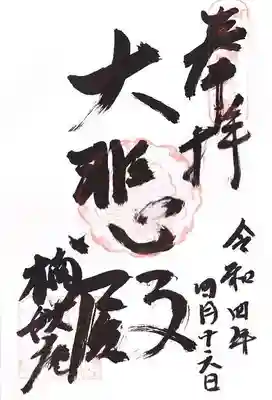 奉拝
令和四年
四月十六日
大悲殿
楠妙庵